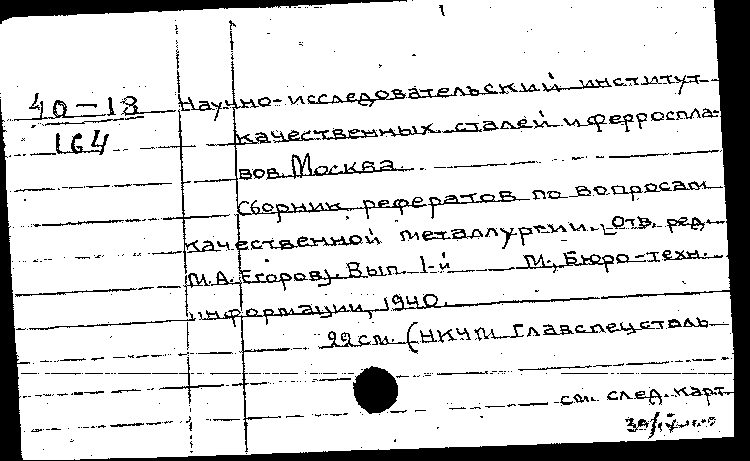 40-18
164
Научно-исследовательский институт
качественных сталей и ферроспла-
вов. Москва.
Сборник рефератов по вопросам
качественной металлургии. [Отв. ред.
М.А. Егоров]. Вып. 1-й М., Бюро техн.
информации, 1940.
22 см. (НКЧМ Главспецсталь
см. след. карт.